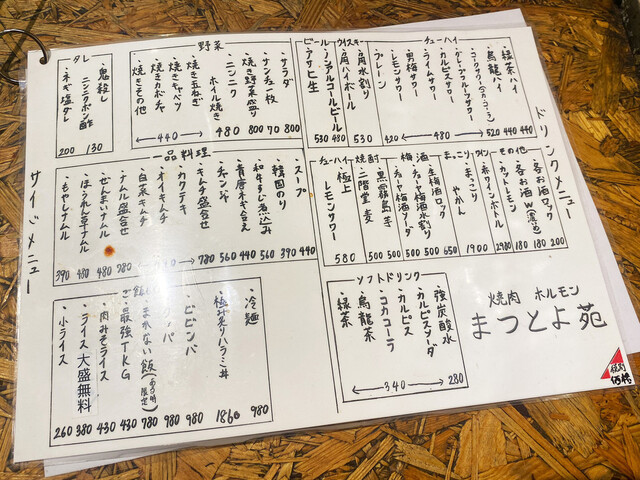 ドリンクメニュー
チューハイ
・緑茶ハイ 440
・烏龍ハイ 440
・コークサワー(コカ・コーラ) 520
・グレープフルーツサワー
・カルピスサワー
・ライムサワー
←480→
・男梅サワー
・レモンサワー
・プレーン 420
ウイスキー
・角水割り
・角ハイボール
530
ビール
・ノンアルコールビール 480
・アサヒ生 530
その他
・各お酒ロック 200
・各お酒W(濃いめ) 180
・カットレモン 180
ワイン
・赤ワインボトル 2980
まっこり
・まっこりやかん 1900
・まっこり 650
梅酒
・生梅酒ロック 500
・チョーヤ梅酒水割り 500
・チョーヤ梅酒ソーダ 500
焼酎
・黒霧島芋 500
・二階堂麦 500
チューハイ
・極上レモンサワー 580
ソフトドリンク
・強炭酸水 280
・カルピスソーダ
・カルピス
・コカコーラ
・烏龍茶
・緑茶
←340→
焼肉 ホルモン
まつとよ苑
サイドメニュー
野菜
・サラダ 800
・サンチュ一枚 70
・焼き野菜盛り 800
・ニンニクホイル焼き 480
・焼き玉ねぎ
・焼きキャベツ
・焼きカボチャ
・焼きその他
←440→
タレ
・鬼殺し
・ニンニクポン酢 130
・ネギ塩ダレ 200
一品料理
・スープ 440
・韓国のり 390
・和牛すじ煮込み 560
・青唐ネギ和え 440
・チャンジャ 560
・キムチ盛合せ 780
・カクテキ
・オイキムチ
・白菜キムチ
・ナムル盛合せ 780
・ぜんまいナムル 480
・ほうれん草ナムル 480
・もやしナムル 390
ご飯
・冷麺 980
・極み炙りハラミ丼 1860
・ビビンバ 980
980
・まかない飯 780
・最強TKG 430
・肉みそライス 430
・ライス大盛無料 380
・小ライス 260